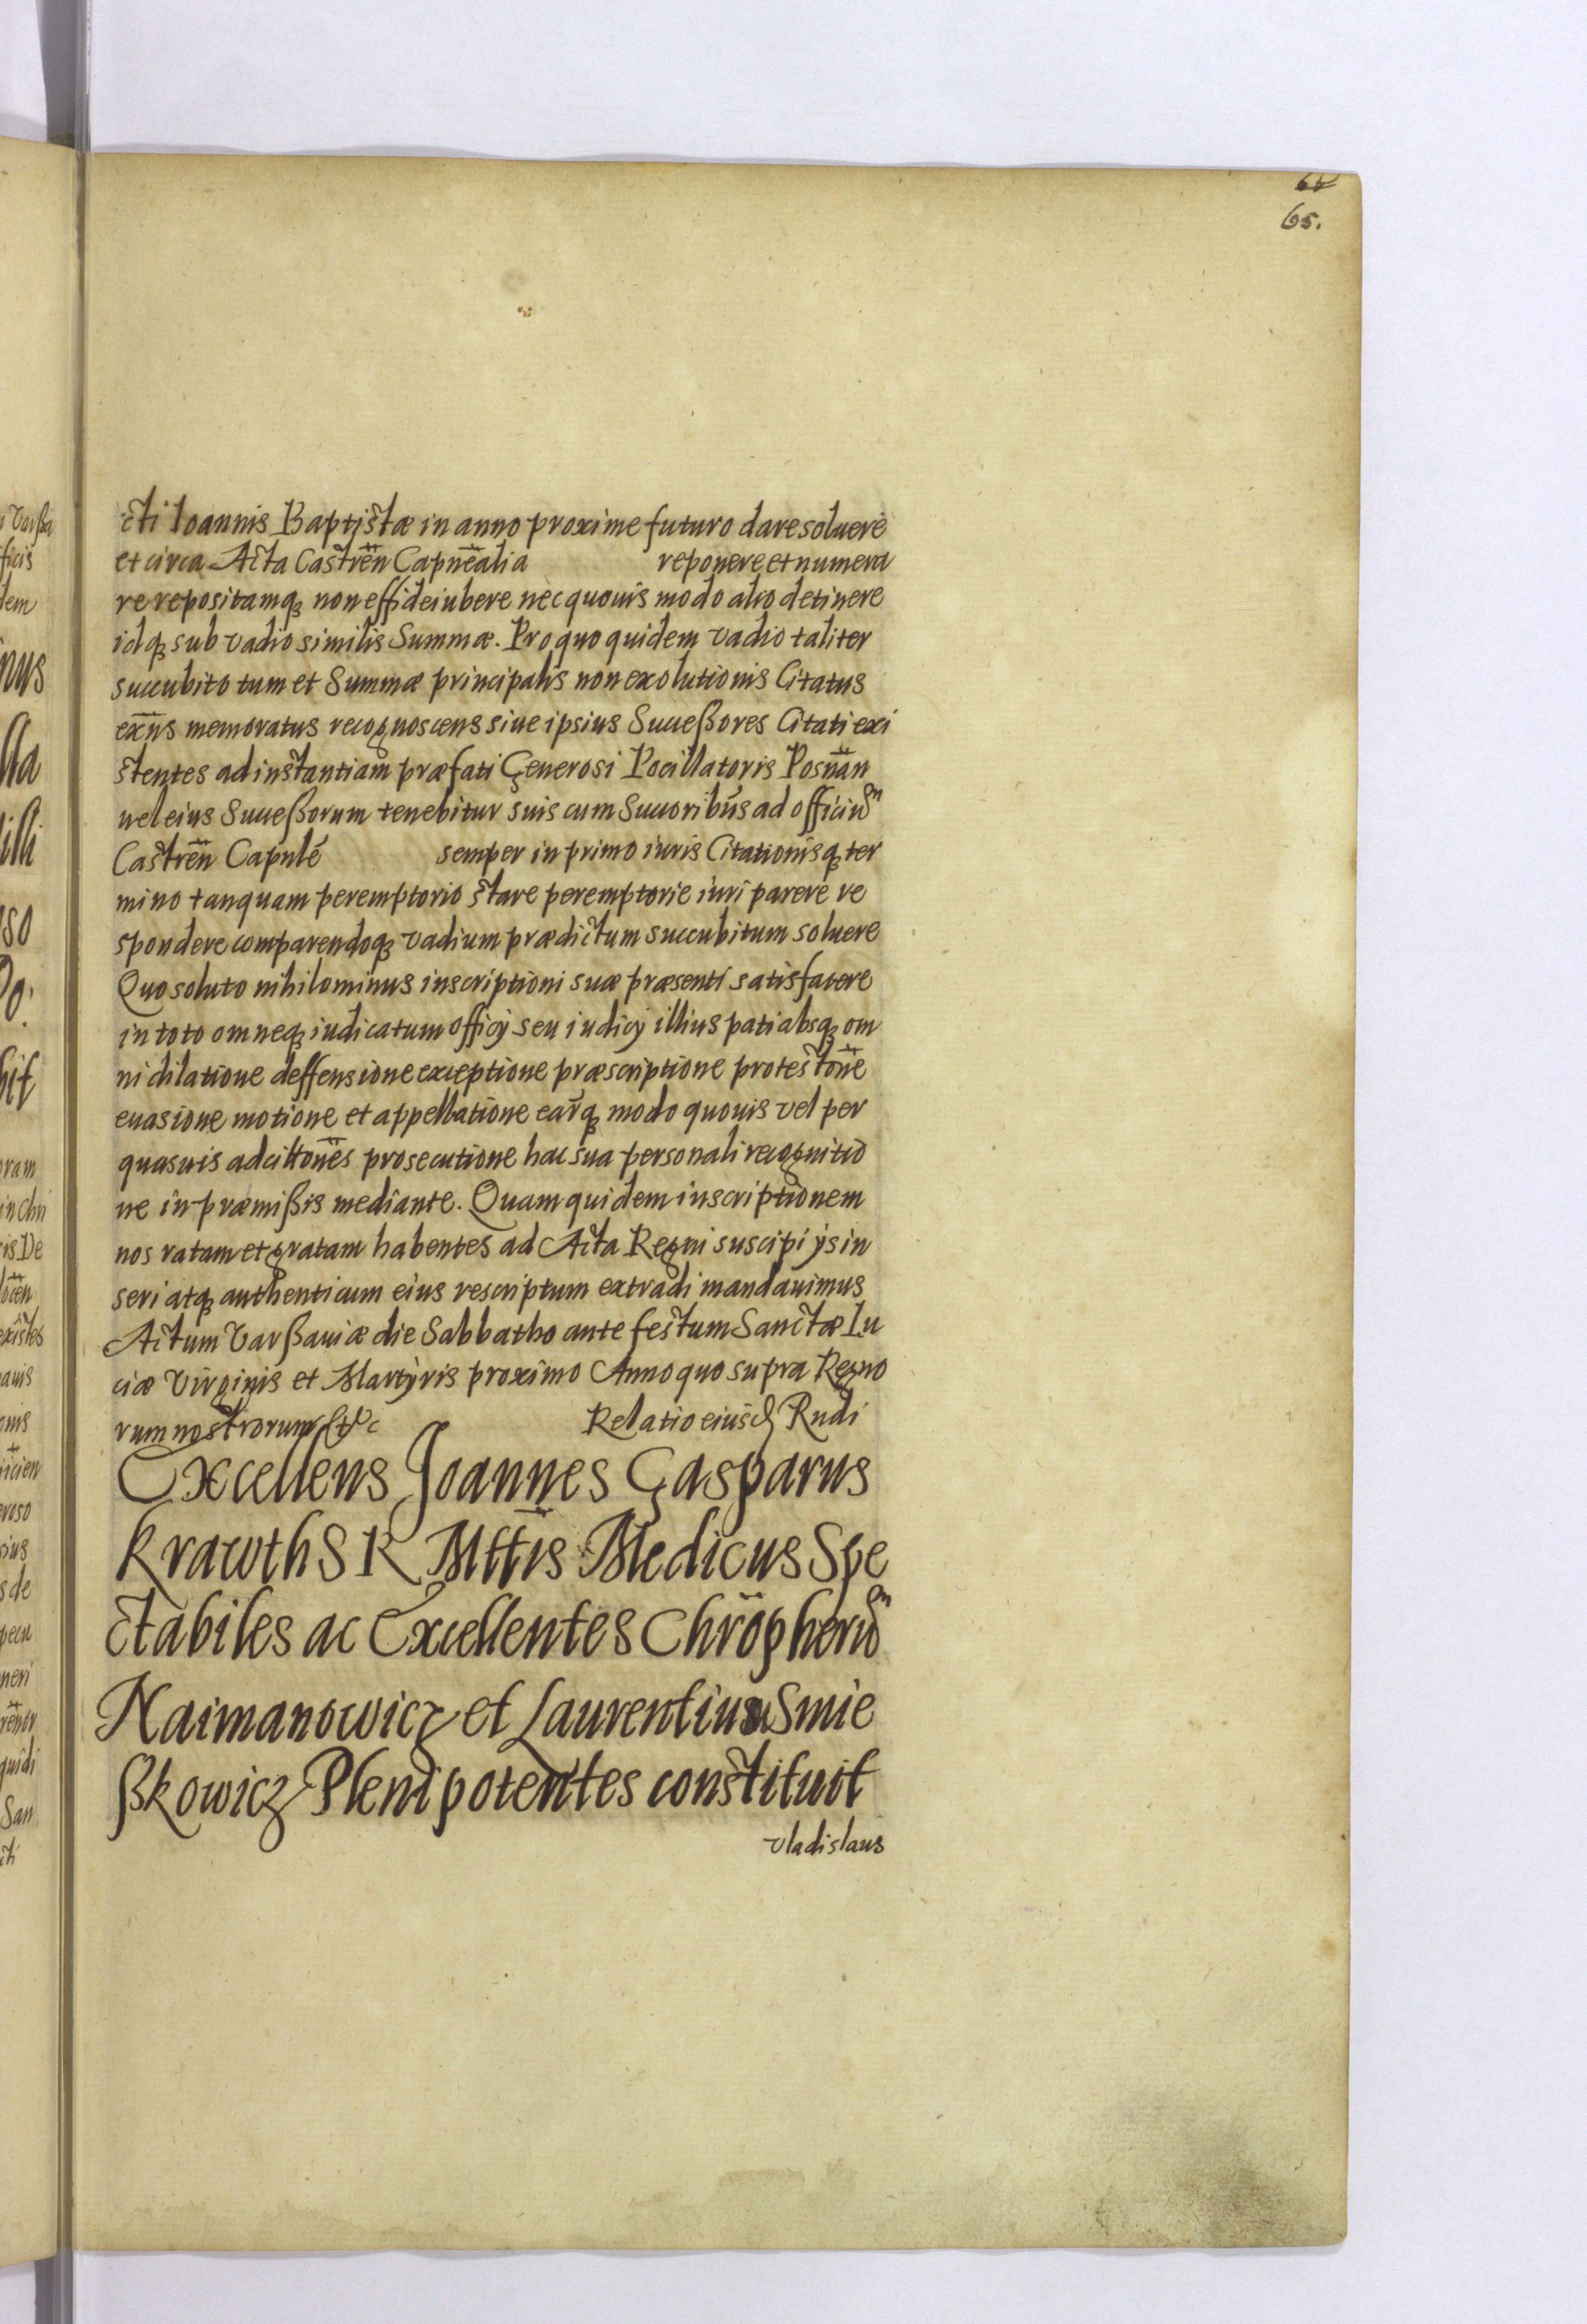 65.
cti Ioannis Baptistæ in anno proxime futuro dare soluere
et circa Acta Castren̄ Capnēalia reponere et numera
re repositamq; non effideiubere nec quouis modo alio detinere
idq; sub vadio similis Summæ. Pro quo quidem vadio taliter
succubito tum et Summæ principalis non exolutionis Citatus
exn̄s memoratus recognoscens siue ipsius Succeßores Citati exi
stentes ad instantiam præfati Generosi Pocillatoris Posnān
uel eius Succeßorum tenebitur suis cum Succoribūs ad officiūm
Castren̄ Capnlé semper in primo iuris Citationisq; ter
mino tanquam peremptorio stare peremptorie iuri parere re
spondere comparendoq; vadium prædictum succubitum soluere
Quo soluto nihilominus inscriptioni suæ præsenti satisfacere
in toto omneq; iudicatum officÿ seu iudicÿ illius pati absq; om
ni dilatione deffensione exceptione præscriptione protestōne
euasione motione et appellatione earq; modo quouis vel per
quasuis adcittōnes prosecutione hac sua personali recognitio
ne in præmißis mediante. Quam quidem inscriptionem
nos ratam et gratam habentes ad Acta Regni suscipi ÿs in
seri atq; authenticum eius rescriptum extradi mandauimus
Actum Varßauiæ die Sabbatho ante festum Sanctæ Lu
ciæ Virginis et Martyris proximo Anno quo supra Regno
rum nostrorum etc Relatio eiusd Rudi
Excellens Joannes Gasparus
Krawth S R Mttis Medicus Spe
ctabiles ac Excellentes Chrōpherūm
Naimanowicz et Laurentium Smie
ßkowicz Plenipotentes constituit
Vladislaus